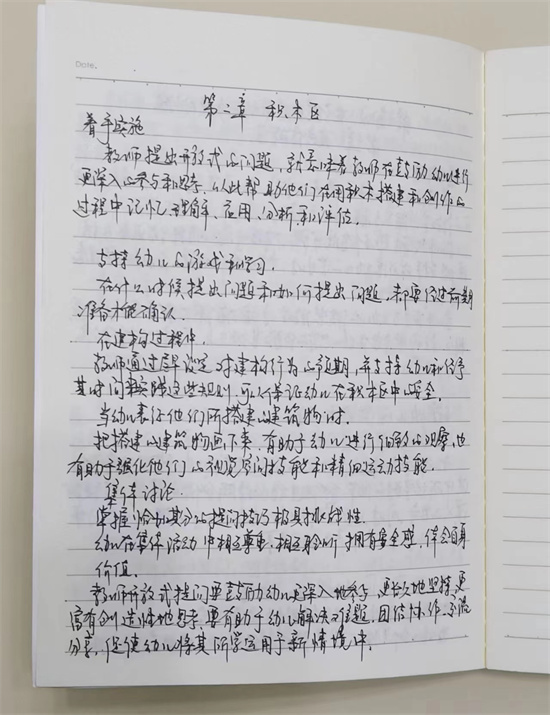 Date.
第二章 积木区
着手实施
教师提出开放式的问题，就意味着教师在鼓励幼儿进行
更深入的参与和思考，以此帮助他们在用积木搭建和创作的
过程中记忆、理解、应用、分析和评估.
支持幼儿的游戏和学习.
在什么时候提出问题和如何提出问题，都要经过前期
准备才能确认.
在建构过程中.
教师通过尽早设定对建构行为的预期，并支持幼儿和给予
其时间来实践这些规则，可以保证幼儿在积木区中的安全.
当幼儿表征他们所搭建的建筑物时.
把搭建的建筑物画下来，有助于幼儿进行细致的观察，也
有助于强化他们的视觉空间技能和精细运动技能.
集体讨论.
掌握恰如其分的提问技巧极具挑战性.
幼儿在集体活动中相互尊重，相互聆听，拥有安全感，体会自身
价值.
教师开放式提问要鼓励幼儿更深入地参与，更长久地坚持，更
富有创造性地思考，要有助于幼儿解决难题，团结协作，交流
分享，促使幼儿将其所学运用于新情境中.